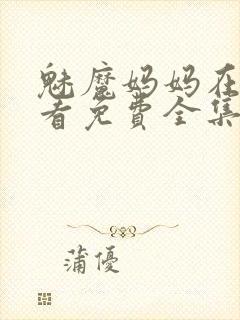 魅魔妈妈在
看免費全集
蒲優